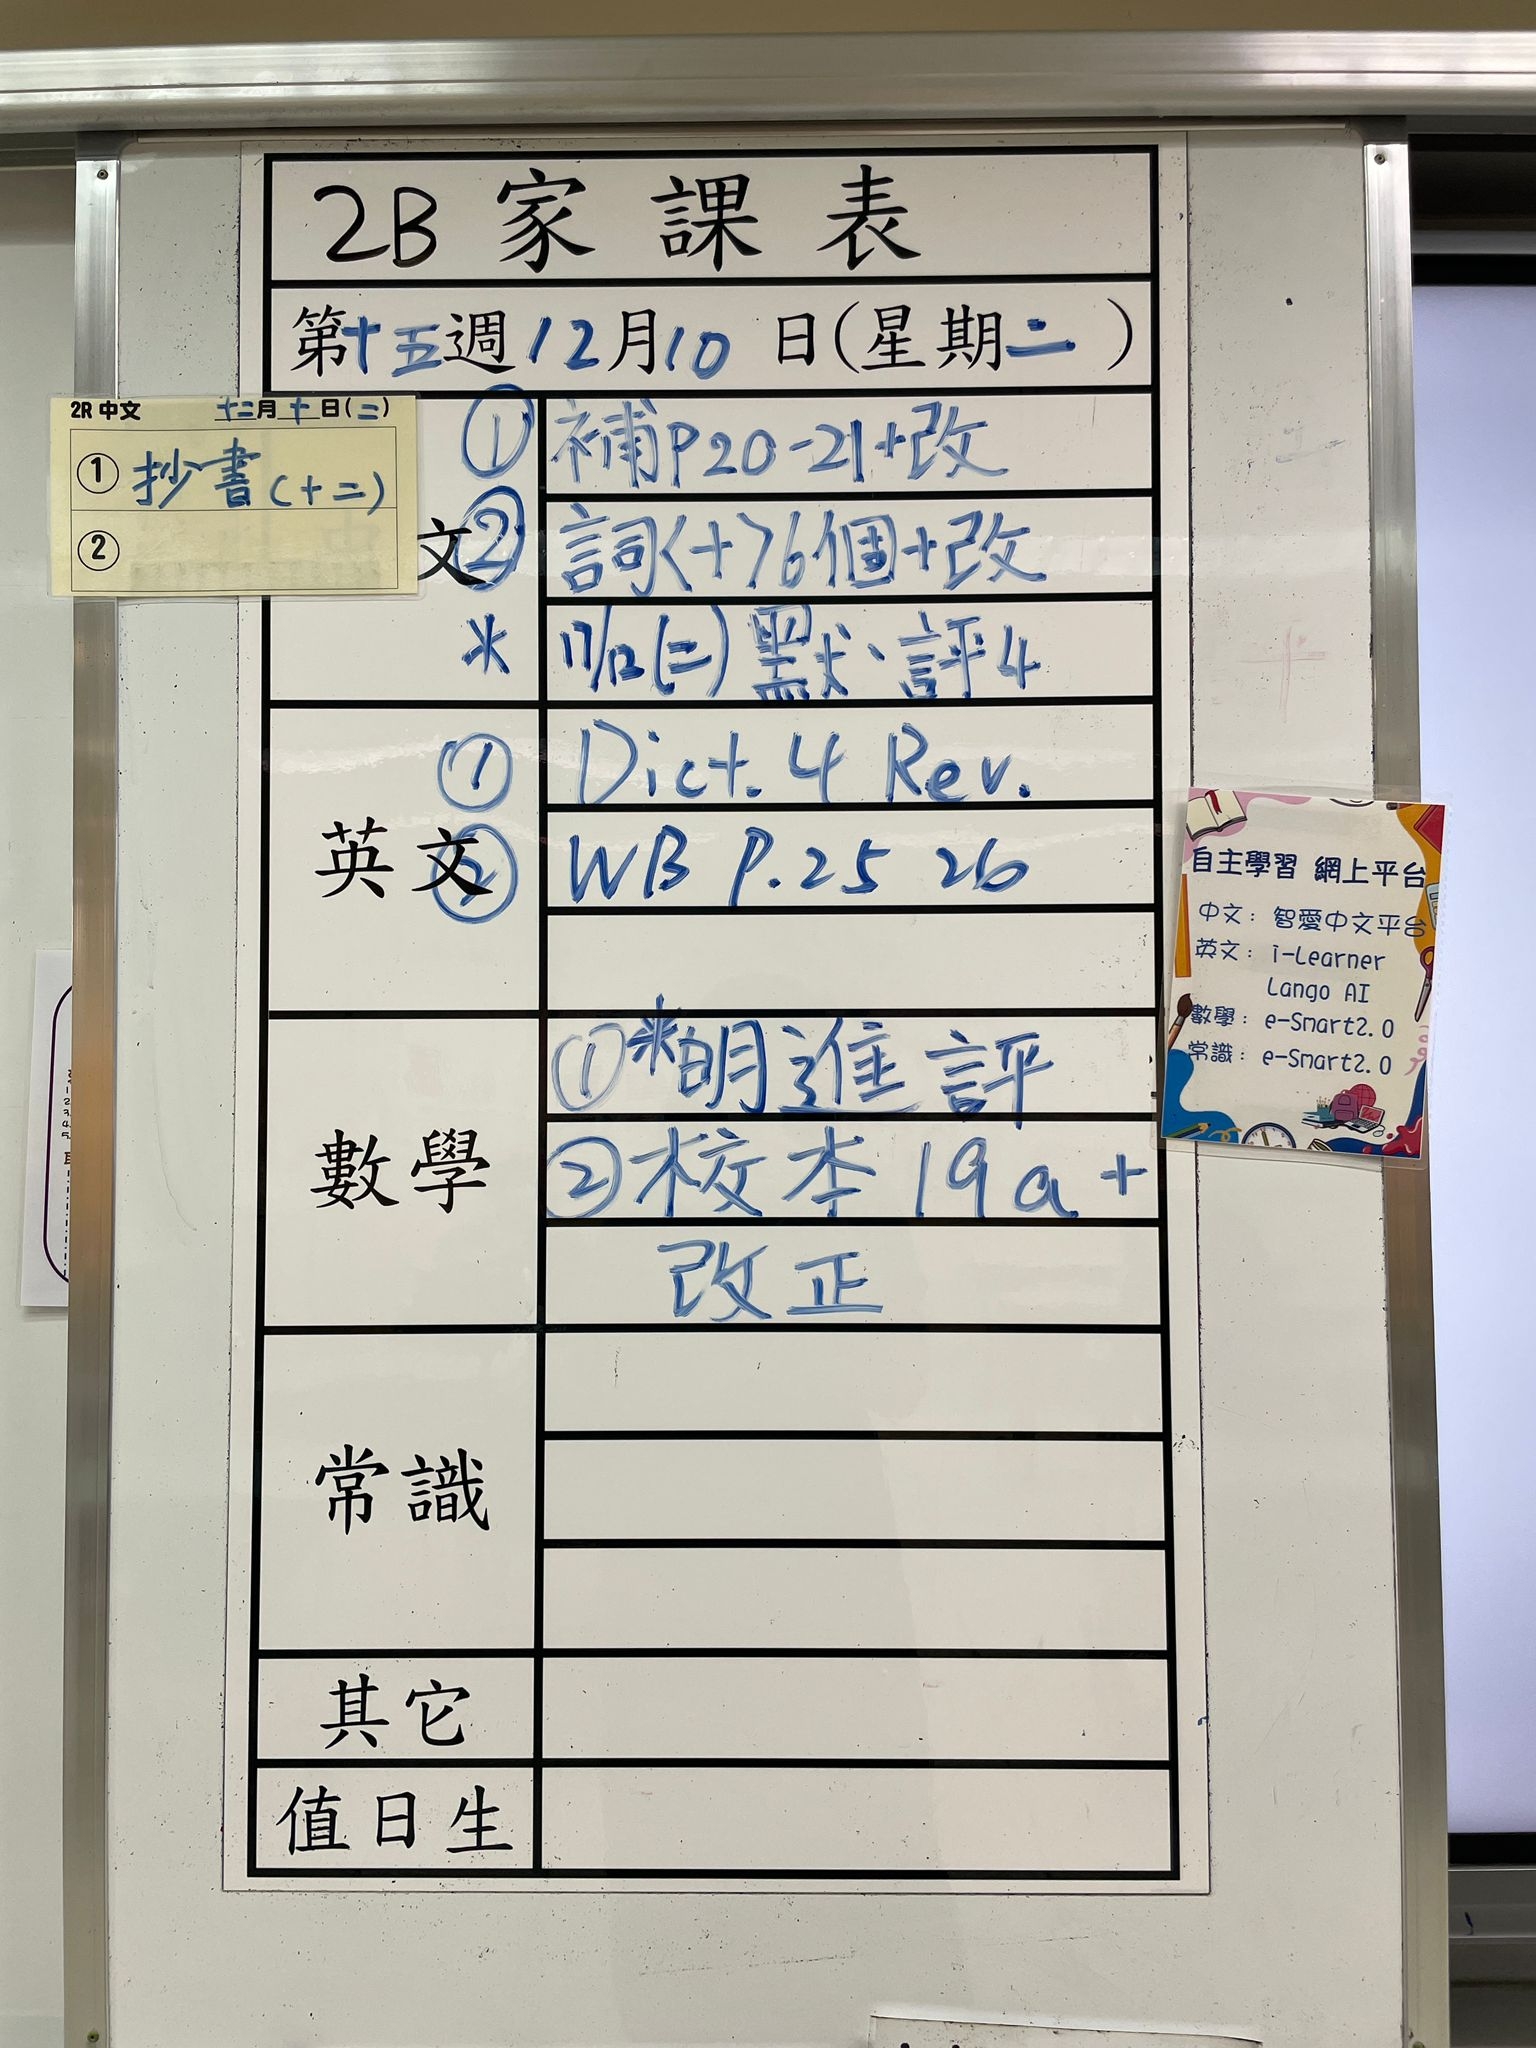 2B 家課表
第十五週12月10日(星期二)
2R 中文 十二月十日(二)
① 抄書(十二)
②
文
① 補P20-21+改
② 詞<十>6個+改
* 17/12(二)默、評4
英文
① Dict. 4 Rev.
② WB P.25 26
數學
①*明進評
②校本19a+
改正
常識
其它
值日生
自主學習 網上平台
中文：智愛中文平台
英文：i-Learner
Lango AI
數學：e-Smart2.0
常識：e-Smart2.0